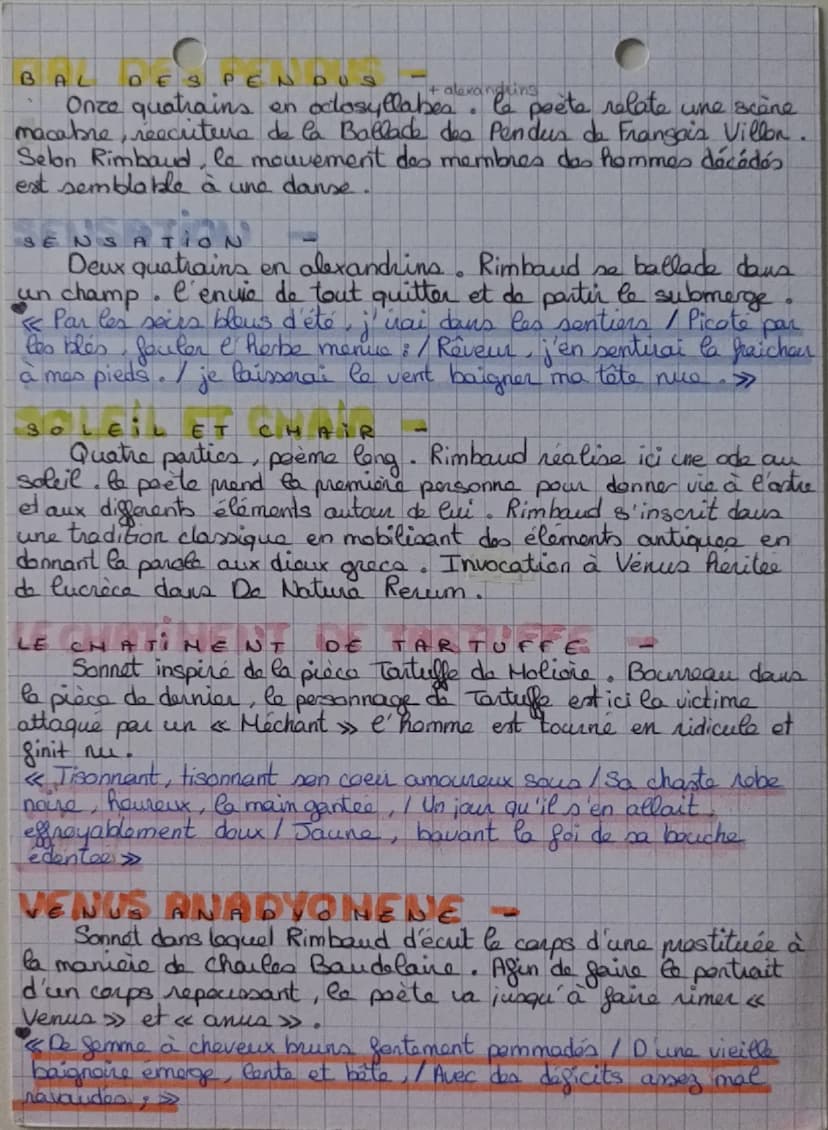 BAL DES PENDUS -
+ alexandrins
Onze quatrains en octosyllabes. Le poète relate une scène
macabre, réécriture de la Ballade des Pendus de François Villon.
Selon Rimbaud, le mouvement des membres des hommes décédés
est semblable à une danse.
SENSATION -
Deux quatrains en alexandrins. Rimbaud se ballade dans
un champ. L'envie de tout quitter et de partir le submerge.
« Par les soirs bleus d'été, j'irai dans les sentiers / Picoté par
les blés, fouler l'herbe menue : / Rêveur, j'en sentirai la fraicheur
à mes pieds. / je laisserai le vent baigner ma tête nue. »
SOLEIL ET CHAIR -
Quatre parties, poème long. Rimbaud réalise ici une ode au
soleil. Le poète prend la première personne pour donner vie à l'astre
et aux différents éléments autour de lui. Rimbaud s'inscrit dans
une tradition classique en mobilisant des éléments antiques en
donnant la parole aux dieux grecs. Invocation à Vénus héritée
de Lucrèce dans De Natura Rerum.
LE CHATIMENT DE TARTUFFE -
Sonnet inspiré de la pièce Tartuffe de Molière. Bourreau dans
la pièce de dernier, le personnage de Tartuffe est ici la victime
attaqué par un « Méchant » l'homme est tourné en ridicule et
finit nu.
« Tisonnant, tisonnant son coeur amoureux sous / Sa chaste robe
noire, heureux, la main gantée, / Un jour qu'il s'en allait,
effroyablement doux / Jaune, bavant la foi de sa bouche
édentée »
VENUS ANADYOMENE -
Sonnet dans lequel Rimbaud d'écrit le corps d'une prostituée à
la manière de Charles Baudelaire. Afin de faire le portrait
d'un corps repoussant, le poète va jusqu'à faire rimer «
Venus » et « anus ».
« De femme à cheveux bruns fortement pommadés / D'une vieille
baignoire émerge, lente et bête, / Avec des déficits assez mal
ravaudés ; »